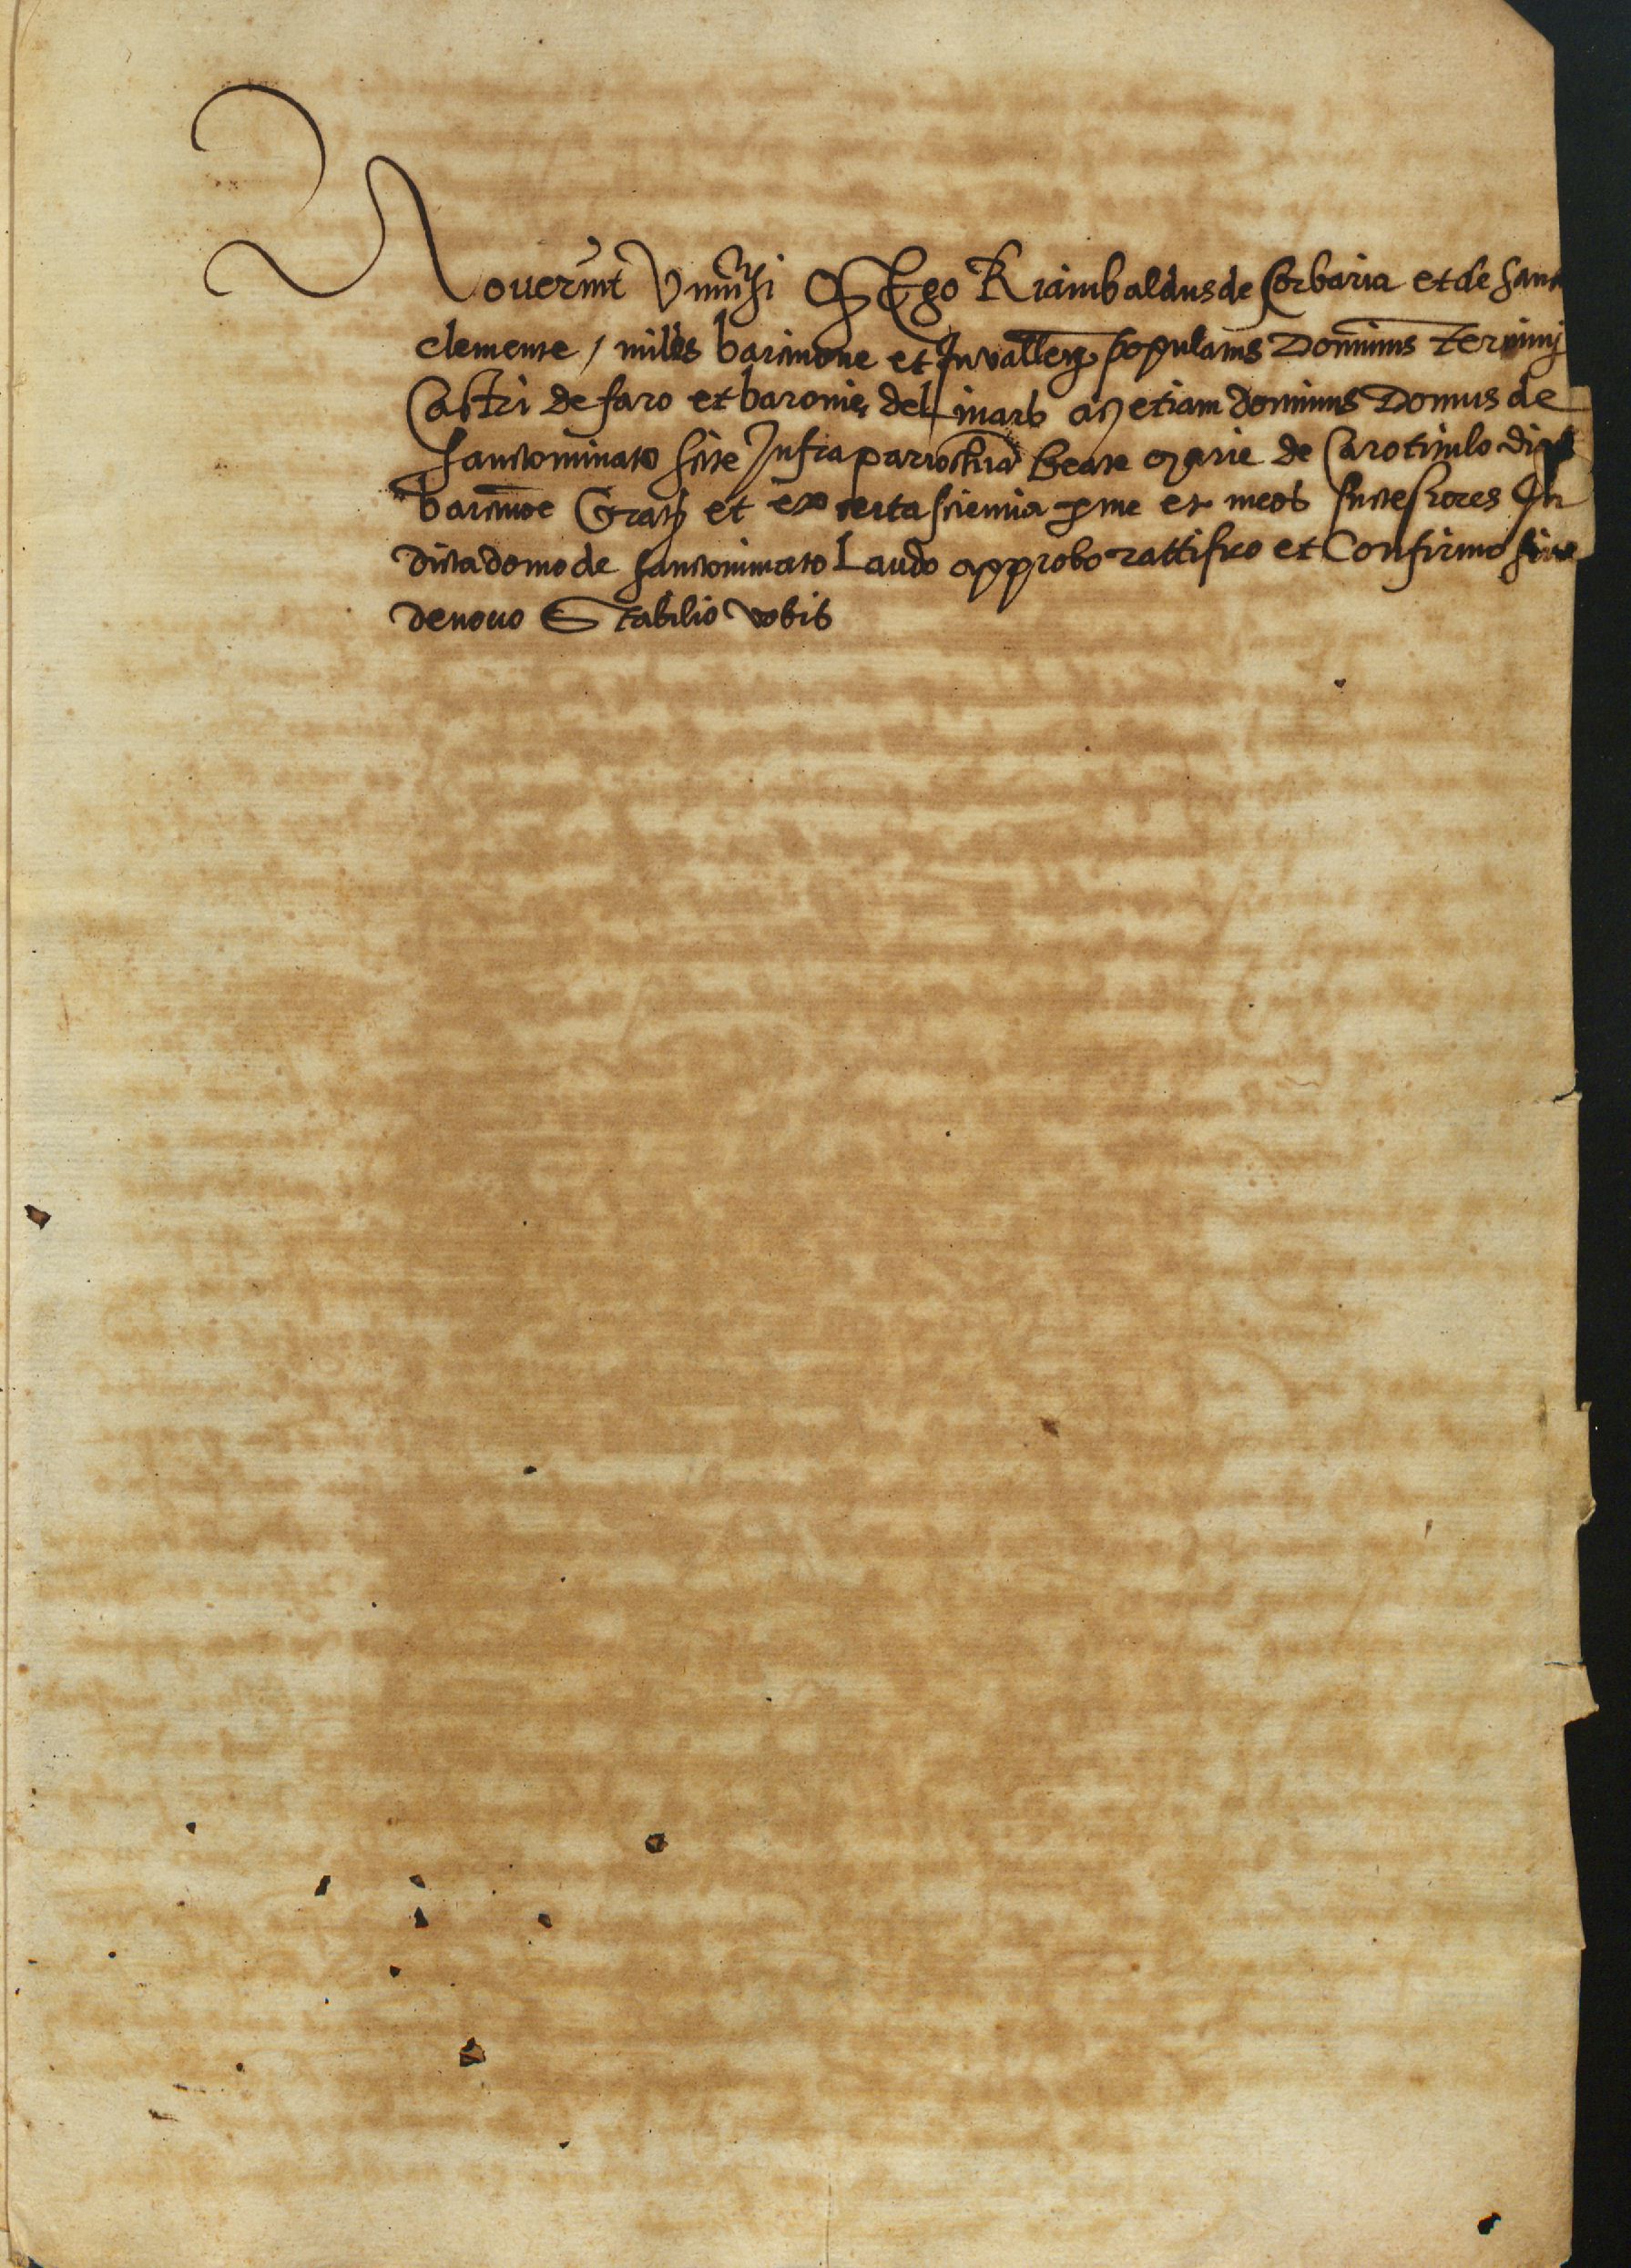 Noverint Universi Q Ego Riambaldus de Corbaria et de Sanct
clemente / miles barcinone et In vallen populatus Dominus termini
Castri de faro et baronie del linars ac etiam dominus Domus de
sanctominato site Infra parrochia beate marie de Carotitulo dict
barcinone Gratis et ex certa sciencia per me et meos successores In
dicta domo de sanctominato Laudo approbo rattifico et Confirmo sive
de novo Stabilio vobis